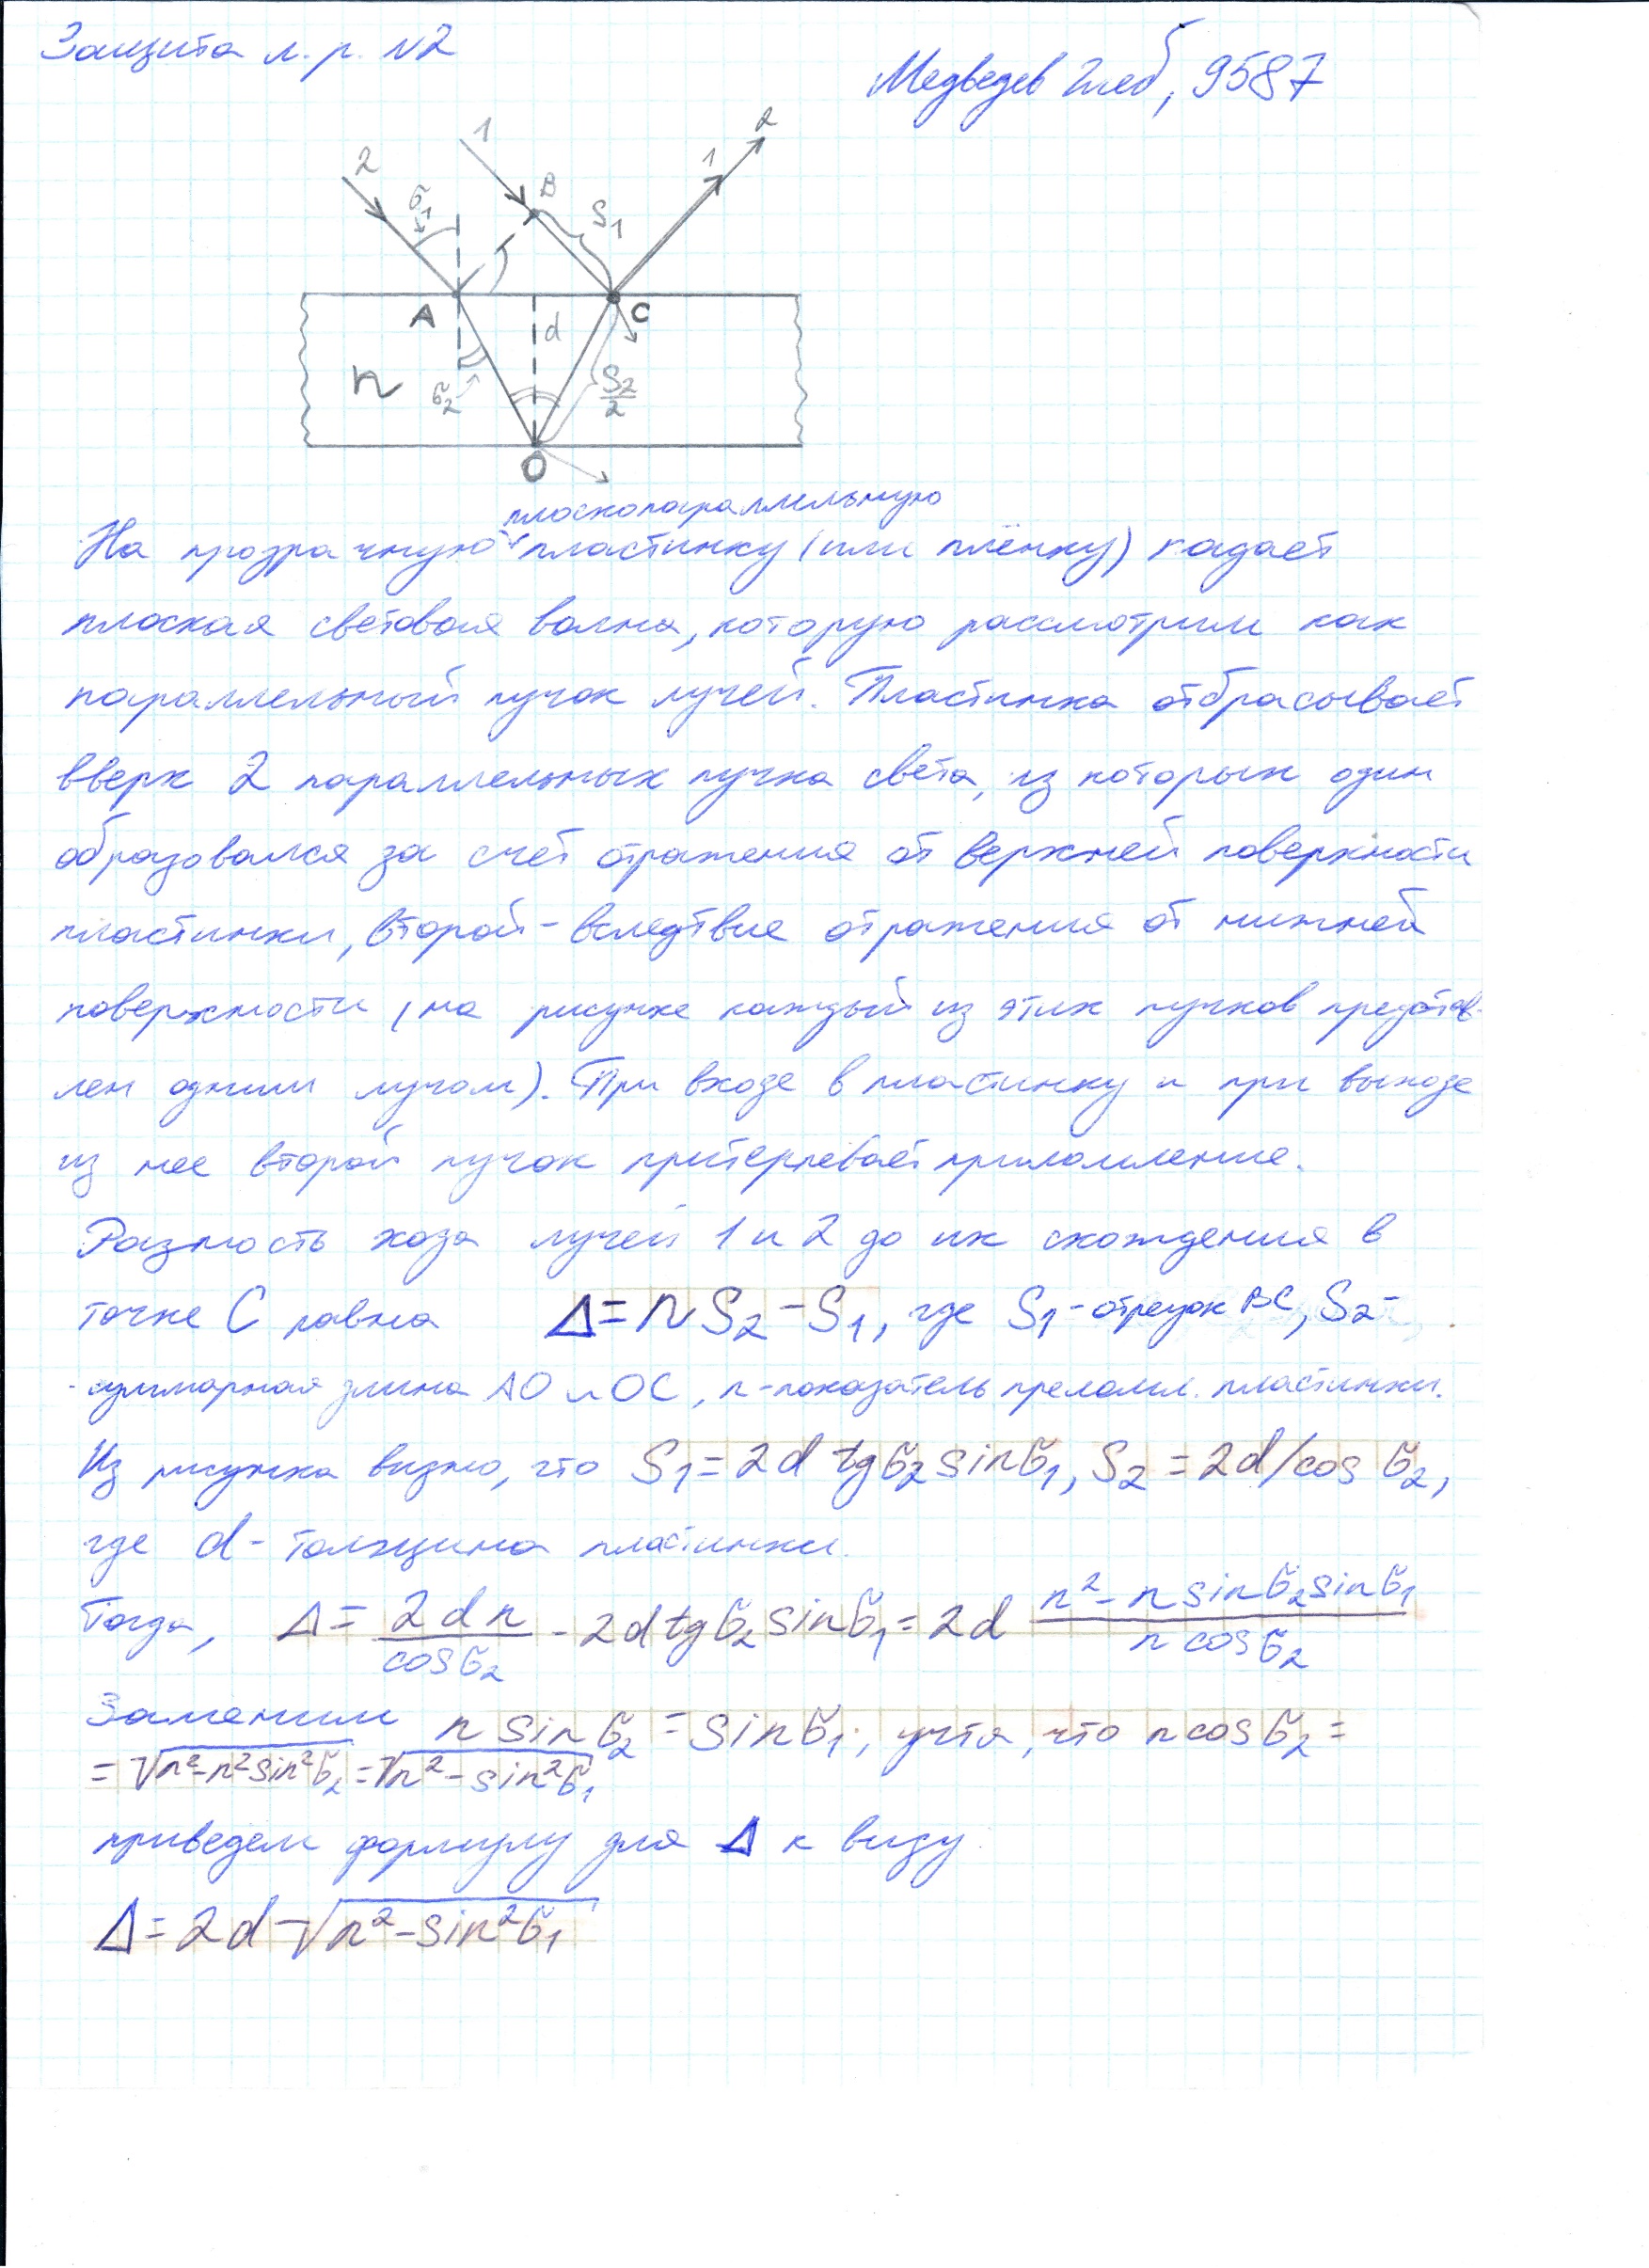 Защита л. р. N2
Медведев Глеб, 9587
2
1
2
1
б1
B
S1
A
C
d
n
б2
S2/2
O
плоскопараллельную
На прозрачную пластинку (или плёнку) падает
плоская световая волна, которую рассмотрим как
параллельный пучок лучей. Пластинка отбрасывает
вверх 2 параллельных пучка света, из которых один
образовался за счет отражения от верхней поверхности
пластинки, второй - вследствие отражения от нижней
поверхности (на рисунке каждый из этих пучков представ-
лен одним лучом). При входе в пластинку и при выходе
из нее второй пучок притерпевает приломление.
Разность хода лучей 1 и 2 до их схождения в
точке C равна Δ = n S2 - S1, где S1 - отрезок BC, S2 -
- суммарная длина AO и OC, n - показатель преломл. пластинки.
Из рисунка видно, что S1 = 2d tgб2 sinб1, S2 = 2d/cos б2,
где d - толщина пластинки.
Тогда, Δ = 2dn/cosб2 - 2d tgб2 sinб1 = 2d (n² - n sinб2 sinб1)/(n cosб2)
Заменим n sinб2 = sinб1, учтя, что n cosб2 =
= √(n² - n² sin²б2) = √(n² - sin²б1)
приведем формулу для Δ к виду
Δ = 2d √(n² - sin²б1)